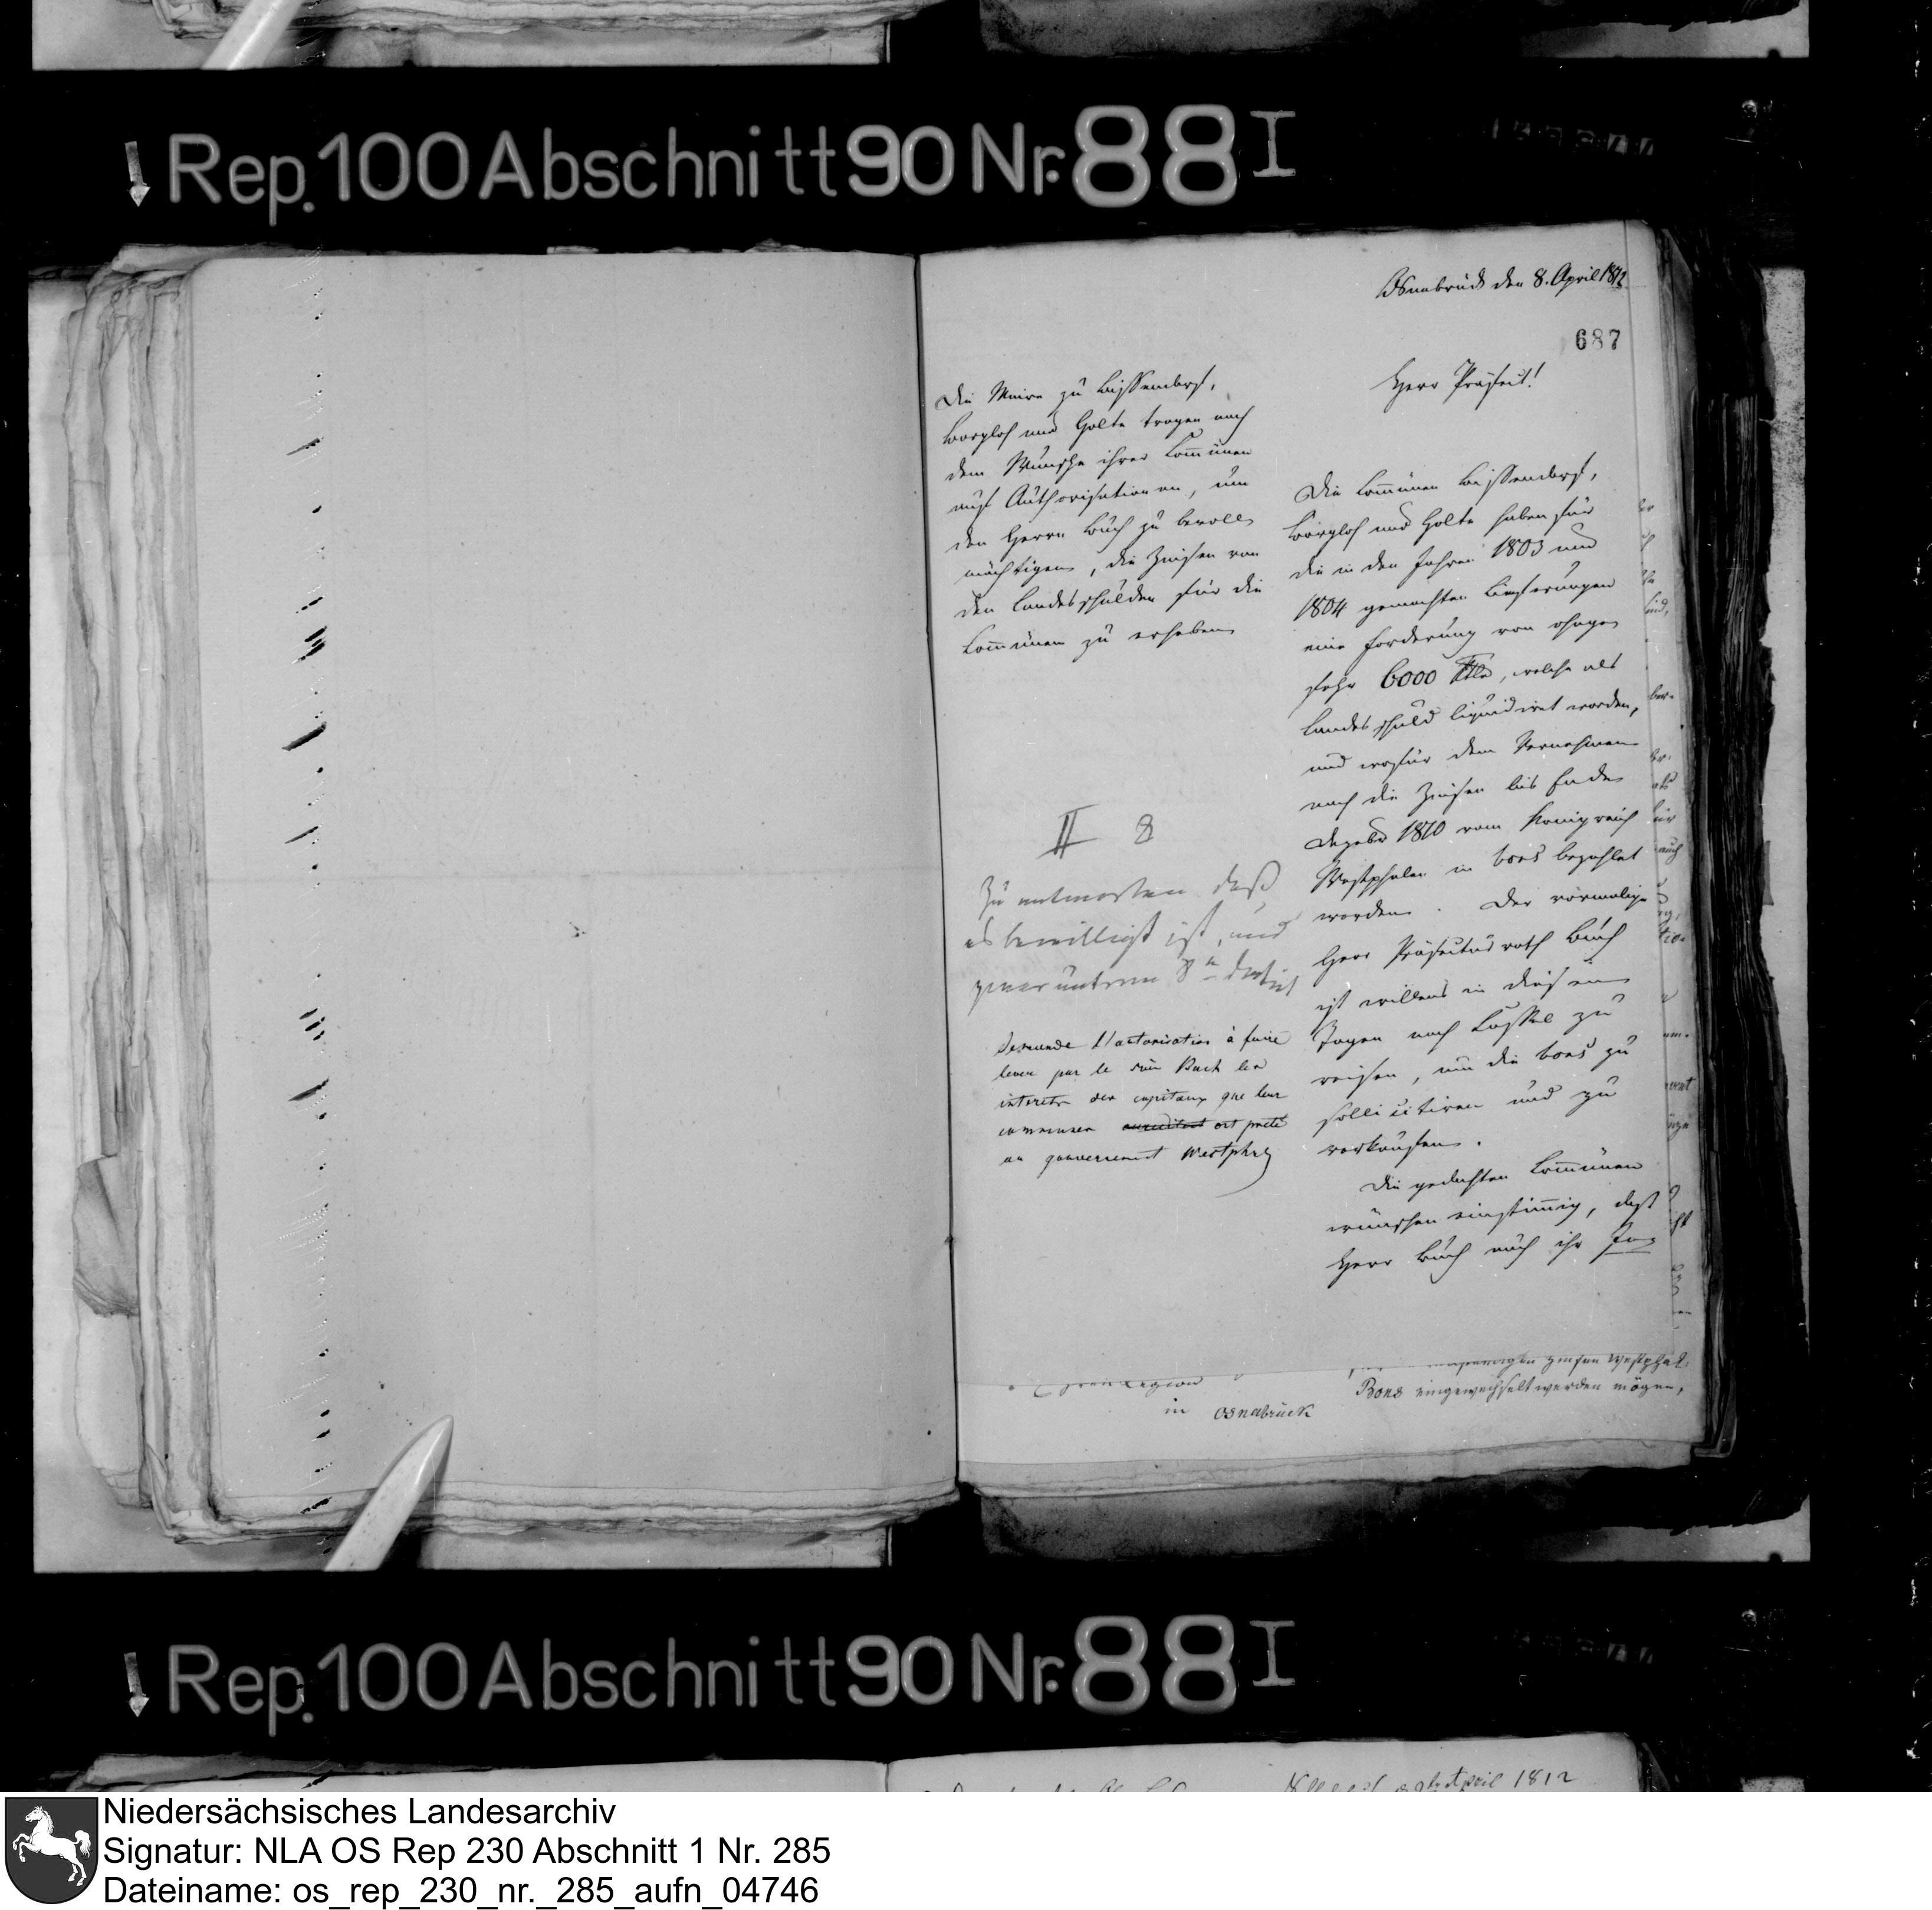 Rep. 100 Abschnitt 90 Nr. 88 I
Osnabrück den 8. April 1812
687
Herr Präfect!
Die Maire zu Bissendorf,
Borgloh und Holte tragen nach
dem Wunsche ihrer Com̄ünen
auf Authorisationen, um
den Herrn Buch zu bevoll-
mächtigen, die Zinsen von
den Landesschulden für die
Com̄ünen zu erheben
II 8
Zu antworten daß
es bewilligt ist, und
zwar unterm 8n
demande l'autorisation à faire
lever par le sieur Buch les
interets des capitaux que leur
communes ont preté
au gouvernement Westphal
Die Com̄ünen Bissendorf,
Borgloh und Holte haben für
die in den Jahren 1803 und
1804 gemachten Lieferungen
eine Forderung von ohnge-
fehr 6000 Rtlr, welche als
Landesschuld liquidiret worden,
und wofür dem Vernehmen
nach die Zinsen bis Ende
Dezebr 1810 vom Königreich
Westphalen in bons bezahlet
worden. Der vormalige
Herr Präfecturrath Buch
ist willens in diesen
Tagen nach Cassel zu
reisen, um die bons zu
sollicitiren und zu
verkaufen.
Die gedachten Com̄ünen
wünschen einstim̄ig, daß
Herr Buch auch ihr
Zinsen Westphal.
Bons eingewechselt werden mögen,
in Osnabrück
Rep. 100 Abschnitt 90 Nr. 88 I
April 1812
Niedersächsisches Landesarchiv
Signatur: NLA OS Rep 230 Abschnitt 1 Nr. 285
Dateiname: os_rep_230_nr._285_aufn_04746